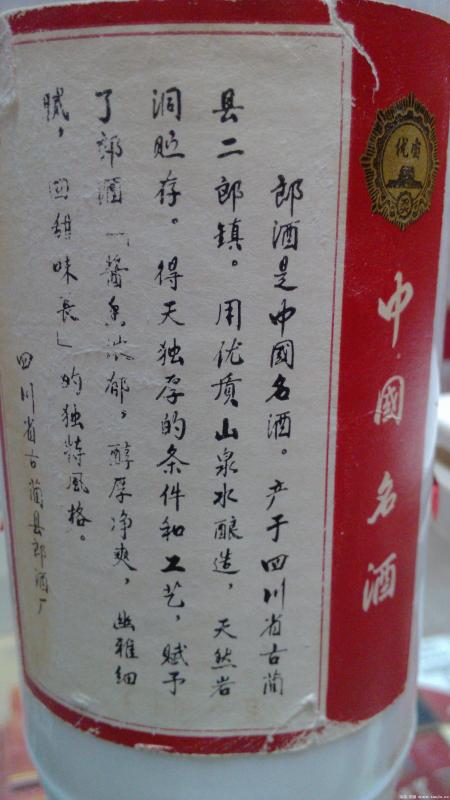 中國名酒
郎酒是中國名酒。产于四川省古蔺
县二郎镇。用优质山泉水酿造，天然岩
洞贮存。得天独厚的条件和工艺，赋予
了郎酒「酱香浓郁，醇厚净爽，幽雅细
腻，回甜味长」的独特風格。
四川省古蔺县郎酒厂